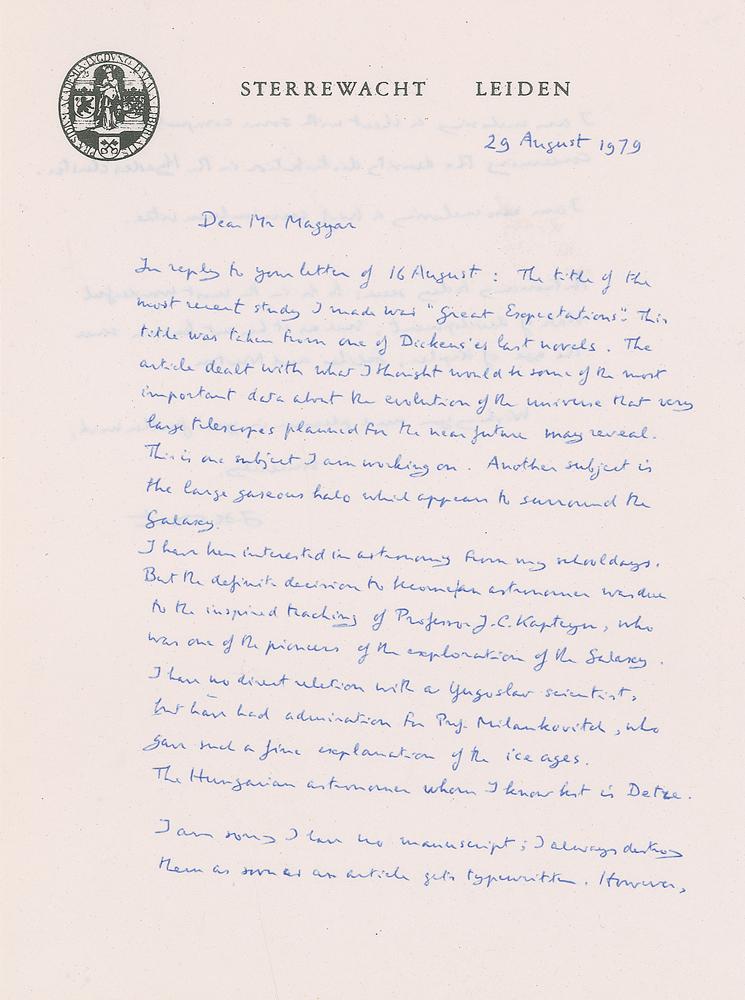 STERREWACHT LEIDEN
29 August 1979
Dear Mr Magyar
In reply to your letter of 16 August : The title of the
most recent study I made was "Great Expectations". This
title was taken from one of Dickens'es last novels. The
article dealt with what I thought would be some of the most
important data about the evolution of the universe that very
large telescopes planned for the near future may reveal.
This is one subject I am working on. Another subject is
the large gaseous halo which appears to surround the
Galaxy.
I have been interested in astronomy from my schooldays.
But the definite decision to become an astronomer was due
to the inspired teaching of Professor J.C. Kapteyn, who
was one of the pioneers of the exploration of the Galaxy.
I have no direct relation with a Yugoslav scientist,
but have had admiration for Prof. Milankovitch, who
gave such a fine explanation of the ice ages.
The Hungarian astronomer whom I know best is Detre.
I am sorry I have no manuscript; I always destroy
them as soon as an article gets typewritten. However,